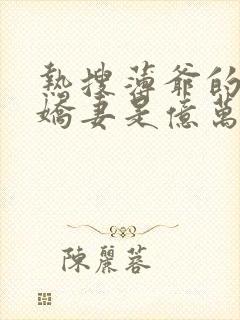 熱搜薄爺的
嬌妻是億萬
陳麗蓉